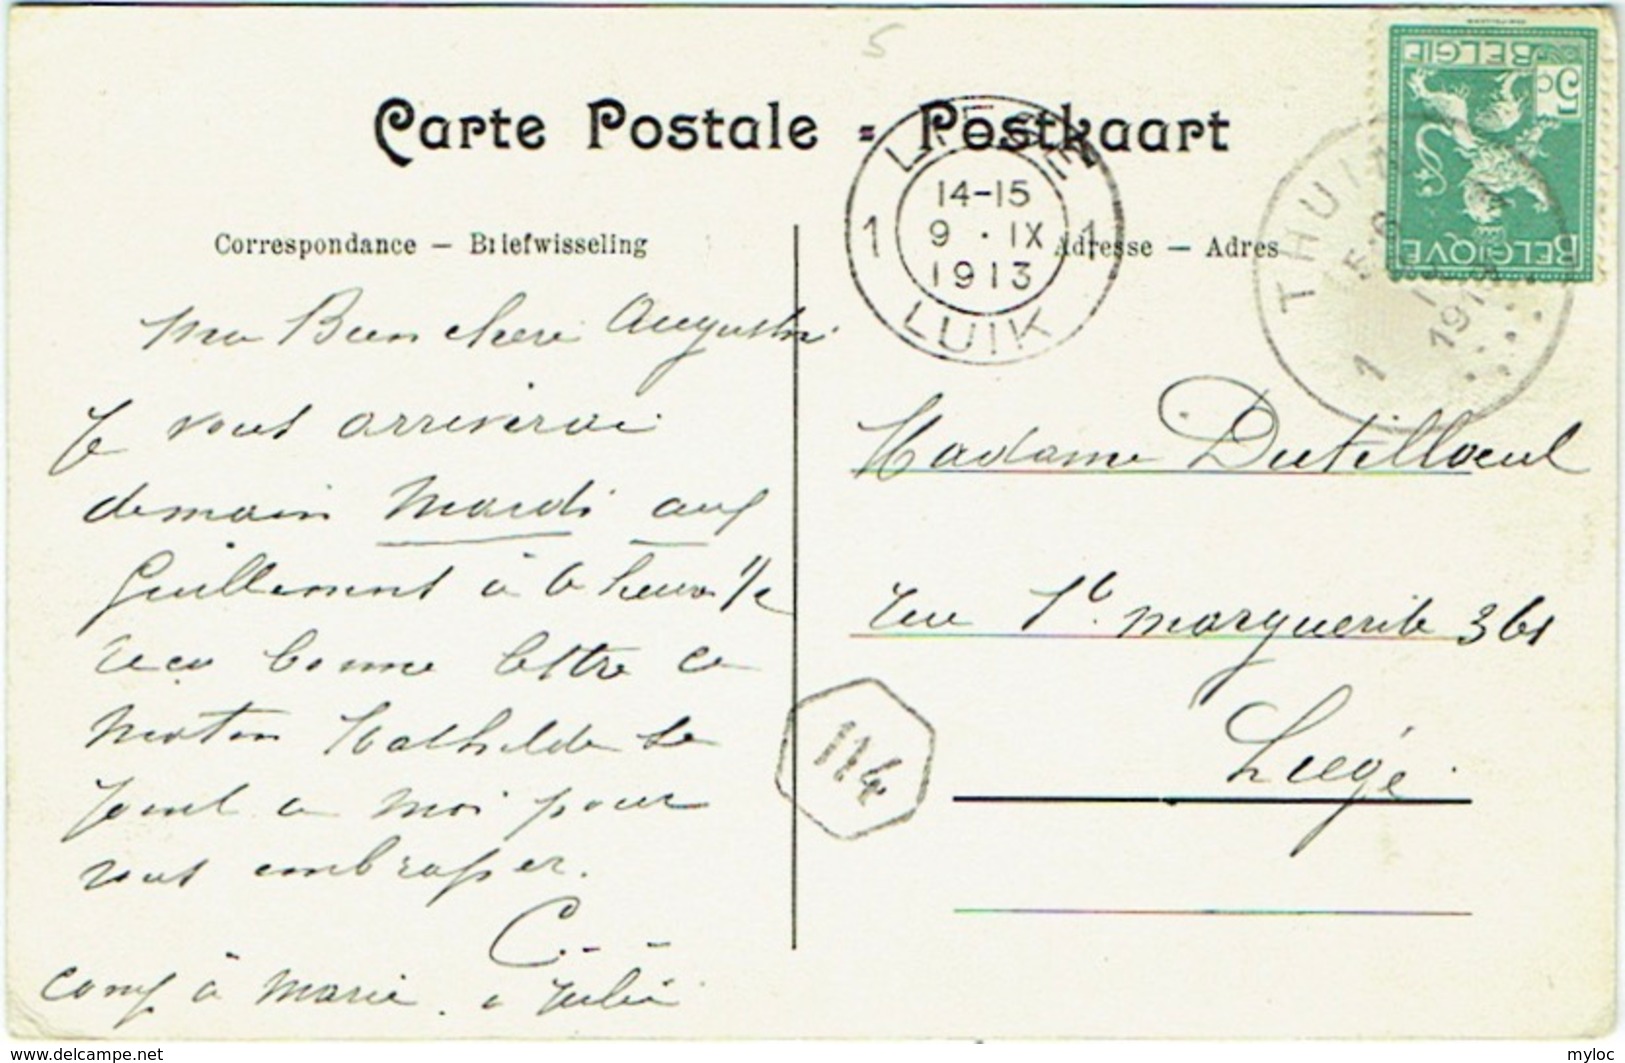 Carte Postale = Postkaart
Correspondance — Briefwisseling
Adresse — Adres
5
LIEGE
14-15
9 · IX
1913
1 1
LUIK
THUIN
1913
1
BELGIQUE
BELGIE
5 C
Ma Bien chère Augustine
Je vous arriverai
demain Mardi aux
Guillemins à 6 heure 1/2
bonne lettre ce
matin Mathilde se
joint a moi pour
vous embrasser.
C.
à Marie. a Julie
114
Madame Dutilloeul
rue Ste. marguerite 361
Liège.
www.delcampe.net
myloc